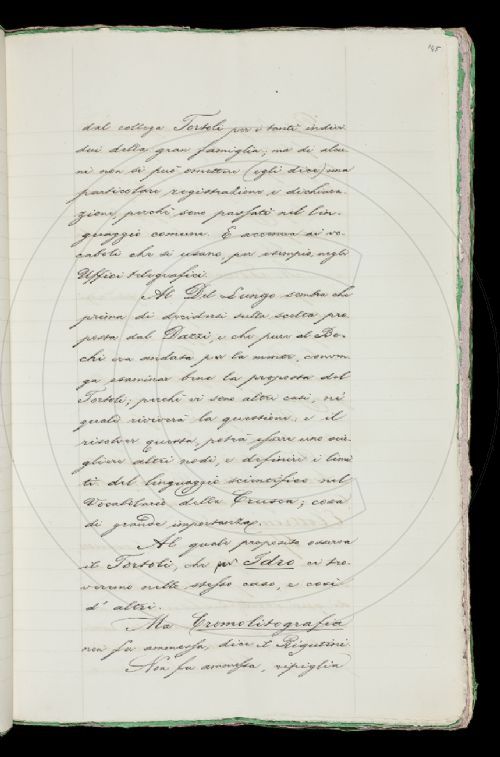 145
dal collega Tortoli per i tanti indivi
dui della gran famiglia; ma di alcu
ni non si può omettere (egli dice) una
particolare registrazione e dichiara
zione, perchè sono passati nel lin-
guaggio comune. E accenna ai vo-
caboli che si usano, per esempio negli
Uffici telegrafici.
Al Del Lungo sembra che
prima di decidersi sulla scelta pro
posta dal Dazzi, e che pure il Be-
chi era andata per la mente, conven
ga esaminar bene la proposta del
Tortoli; perchè vi sono altri casi, nei
quali ricorrerà la questione; e il
risolver questa, potrà essere uno scio
gliere altri nodi, e definire i limi
ti del linguaggio scientifico nel
Vocabolario della Crusca; cosa
di grande importanza.
Al quale proposito osserva
il Tortoli, che per Idro ci tro-
veremo nello stesso caso, e così
d' altri.
Ma Cromolitografia
non fu ammessa, dice il Rigutini.
Non fu ammessa, ripiglia